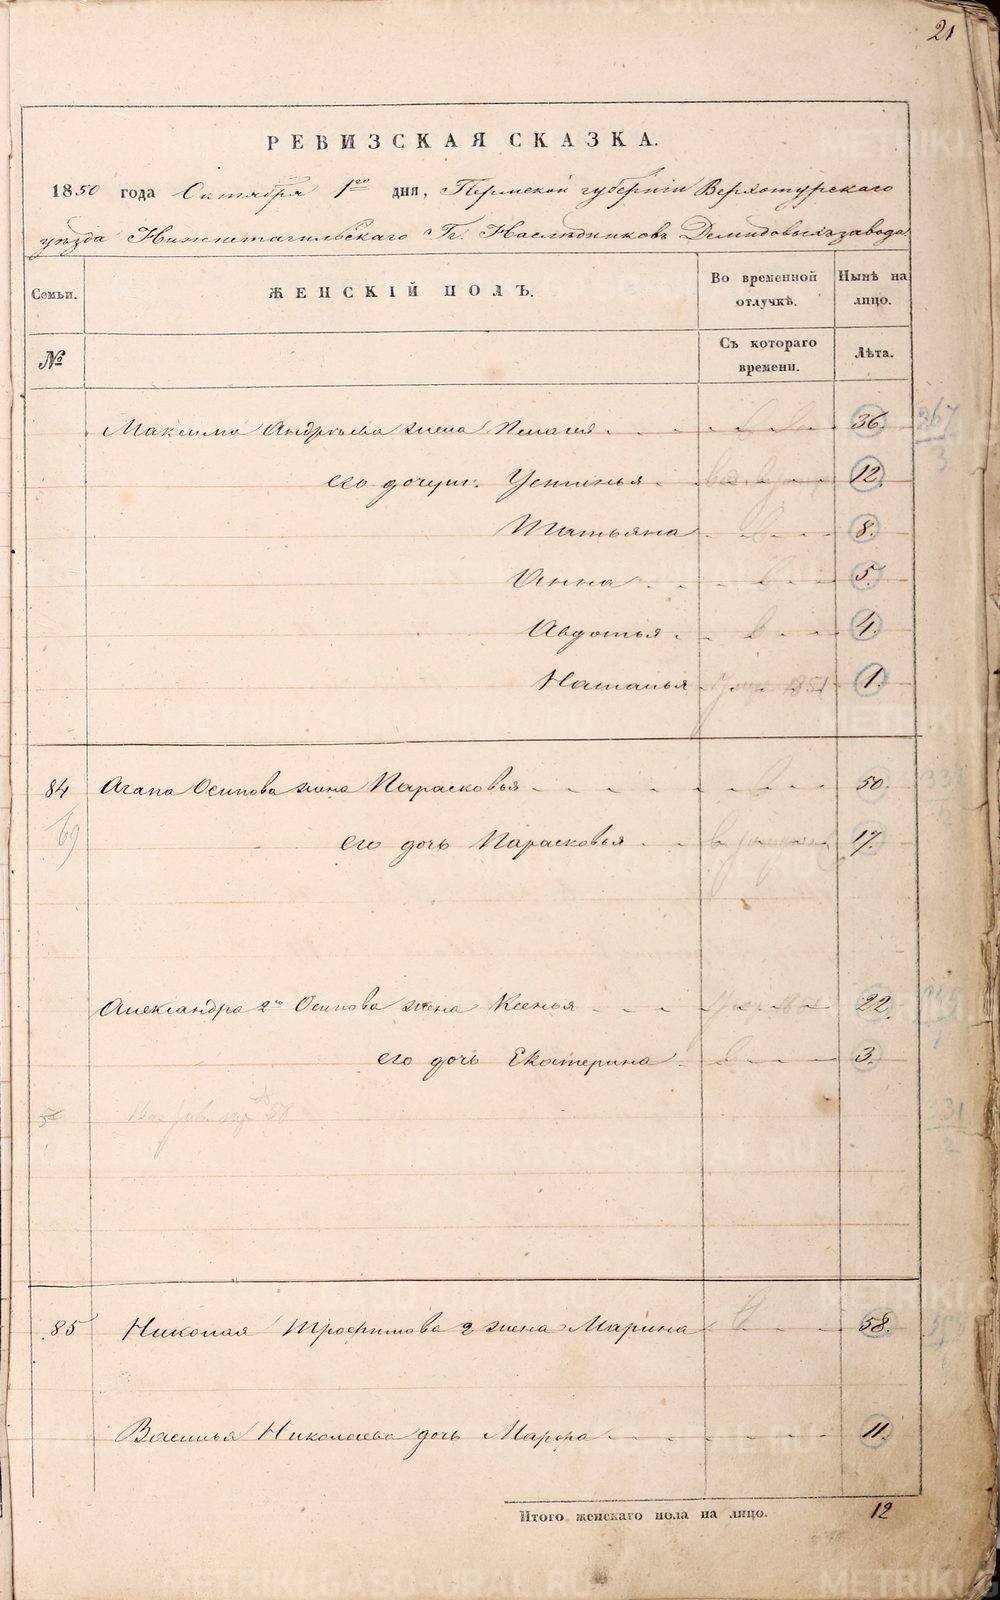 21
РЕВИЗСКАЯ СКАЗКА.
1850 года Октября 1го дня, Пермской губернiи Верхотурскаго
уѣзда Нижнетагильскаго Гг. Наслѣдниковъ Демидовыхъ завода
Семьи. ЖЕНСКІЙ ПОЛЪ. Во временной отлучкѣ. Нынѣ на лицо.
№ Съ котораго времени. Лѣта.
Максима Андрѣева жена Пелагея 36.
его дочери: Устинья 12.
Татьяна 8.
Анна 5.
Авдотья 4.
Наталья 1851 1.
84 Агапа Осипова жена Парасковья 50.
69 его дочь Парасковья 17.
Александра 2го Осипова жена Ксенья 22.
его дочь Екатерина 3.
331
2
85 Николая Трофимова 2 жена Марина 58.
Василья Николаева дочь Марфа 11.
Итого женскаго пола на лицо. 12
METRIKI.GASO-URAL.RU